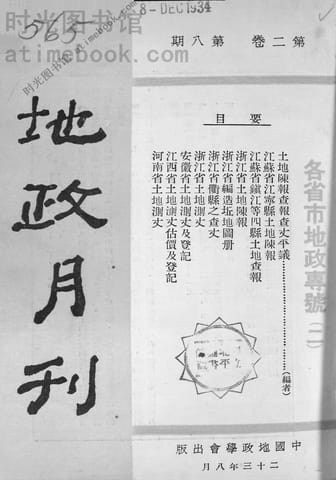 时光图书馆
atimebook.com
8-DEC1934
565
第二卷 第八期
地政月刊
各省市地政專號(二)
要目
土地陳報查報查丈平議……(編者)
江蘇省江寧縣土地陳報
江蘇省鎮江等四縣土地查報
浙江省土地陳報
浙江省編造坵地圖册
浙江省衢縣之查丈
浙江省土地測丈
安徽省土地測丈及登記
江西省土地測丈估價及登記
河南省土地測丈
中國地政學會出版
二十三年八月